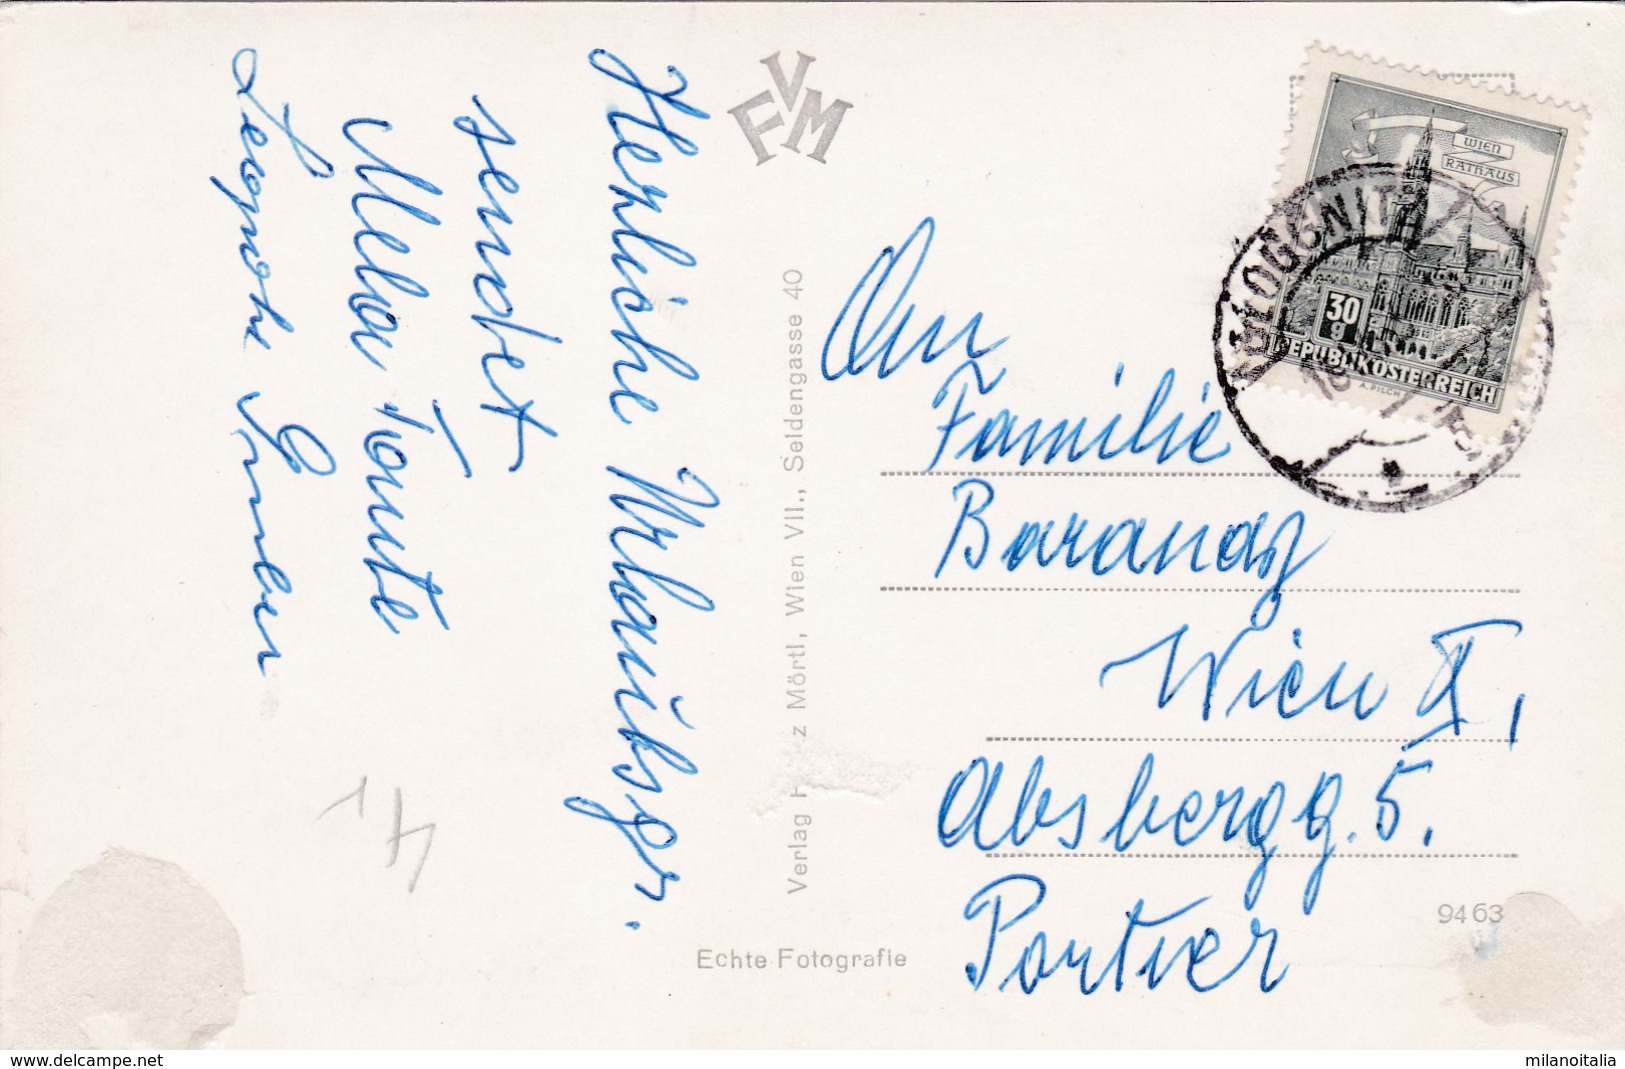 Herzliche Urlaubsgr.
sendet
Mela Tante
Leopold
FVM
Verlag F z Mörtl, Wien VII., Seidengasse 40
Echte Fotografie
WIEN
RATHAUS
30
g
REPUBLIK ÖSTERREICH
A. PILCH
GLOGGNITZ
An
Familie
Barandy
Wien X,
Absbergg. 5.
Portier
9463
www.delcampe.net
milanoitalia